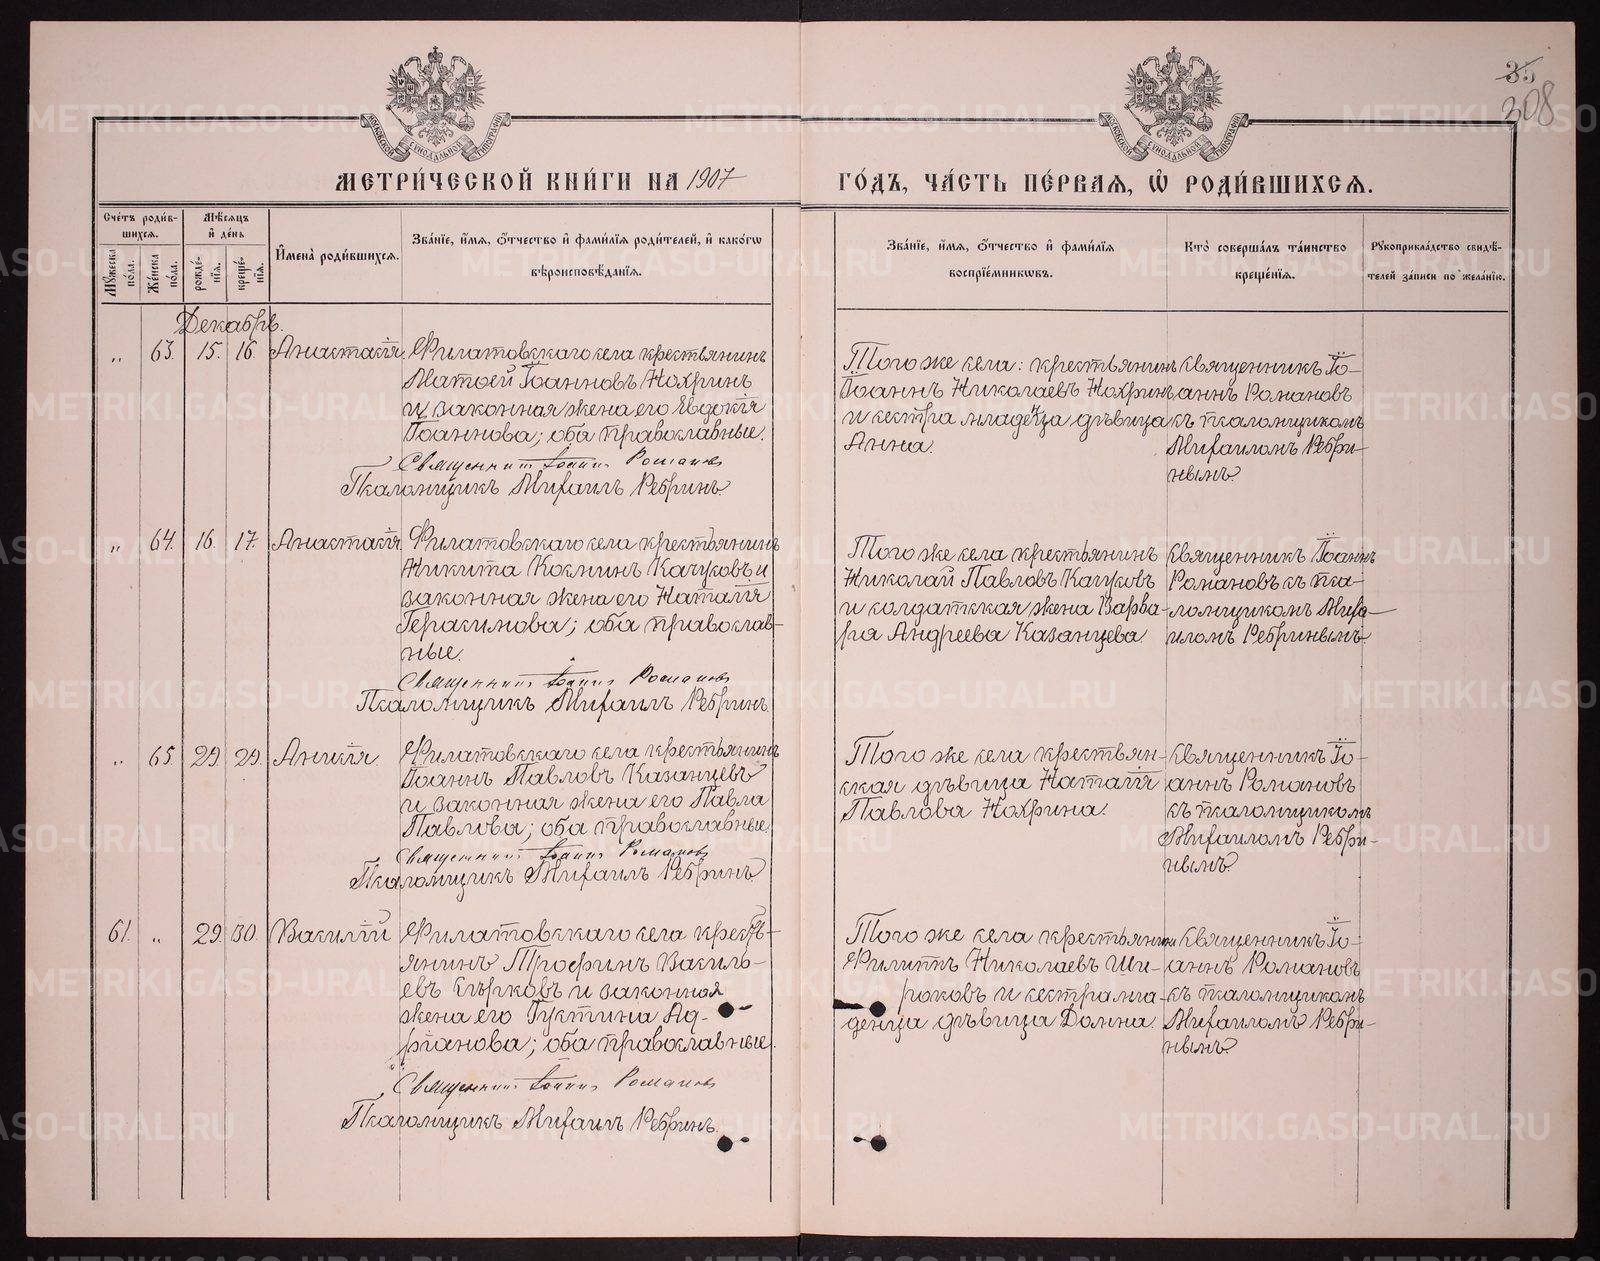 35
308
МЕТРИ́ЧЕСКОЙ КНИ́ГИ НА 1907
ГО́ДЪ, ЧА́СТЬ ПЕ́РВАѦ, Ѡ҆ РОДИ́ВШИХСѦ.
Сче́тъ роди́в-
шихсѧ.
Мѣ́сѧцъ
и҆ де́нь
Мꙋ́жеска по́ла.
Же́нска по́ла.
рожде́-
нїѧ.
креще́-
нїѧ.
И҆мена̀ роди́вшихсѧ.
Зва́нїе, и҆́мѧ, ѻ҆́тчество и҆ фами́лїѧ роди́телей, и҆ како́гѡ
вѣроисповѣ́данїѧ.
Зва́нїе, и҆́мѧ, ѻ҆́тчество и҆ фами́лїѧ
воспрїе́мникѡвъ.
Кто̀ соверша́лъ та́инство
креще́нїѧ.
Рꙋкоприкла́дство свидѣ́-
телей за́писи по жела́нїю.
Декабрь.
„ 63. 15. 16. Анастасія
Филатовскаго села крестьянинъ
Матѳей Іоанновъ Нохринъ
и законная жена его Евдокія
Іоаннова; оба православные.
Священникъ Іоаннъ Романовъ
Псаломщикъ Михаилъ Ребринъ.
Того же села: крестьянинъ
Іоаннъ Николаевъ Нохринъ
и сестра младенца дѣвица
Анна.
Священникъ Іо-
аннъ Романовъ
съ псаломщикомъ
Михаиломъ Ребри-
нымъ.
„ 64. 16. 17. Анастасія
Филатовскаго села крестьянинъ
Никита Косминъ Качуковъ и
законная жена его Наталія
Герасимова; оба православ-
ные.
Священникъ Іоаннъ Романовъ
Псаломщикъ Михаилъ Ребринъ.
Того же села крестьянинъ
Николай Павловъ Качуковъ
и солдатская жена Варва-
ра Андреева Казанцева
Священникъ Іоаннъ
Романовъ съ пса-
ломщикомъ Миха-
иломъ Ребринымъ.
„ 65. 29. 29. Анисія
Филатовскаго села крестьянинъ
Іоаннъ Павловъ Казанцевъ
и законная жена его Павла
Павлова; оба православные.
Священникъ Іоаннъ Романовъ
Псаломщикъ Михаилъ Ребринъ
Того же села крестьян-
ская дѣвица Наталія
Павлова Нохрина.
Священникъ Іо-
аннъ Романовъ
съ псаломщикомъ
Михаиломъ Ребри-
нымъ.
61. „ 29. 30. Василій
Филатовскаго села кресть-
янинъ Трофимъ Василь-
евъ Сърковъ и законная
жена его Густина Ад-
ріанова; оба православные.
Священникъ Іоаннъ Романовъ
Псаломщикъ Михаилъ Ребринъ.
Того же села крестьянинъ
Филиппъ Николаевъ Ши-
роковъ и сестра мла-
денца дѣвица Домна.
Священникъ Іо-
аннъ Романовъ
съ псаломщикомъ
Михаиломъ Ребри-
нымъ.